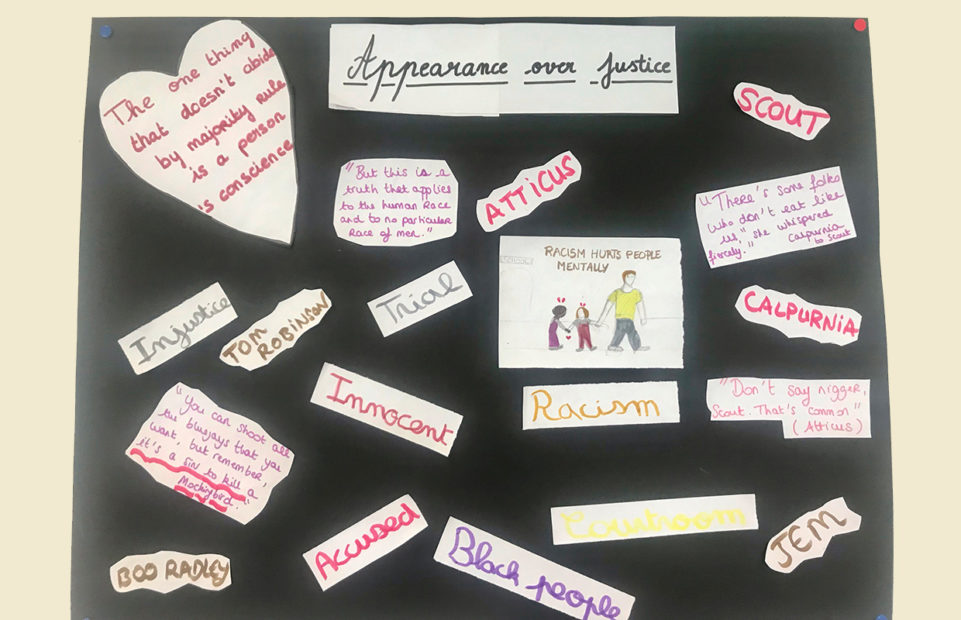 Appearance over Justice
The one thing
that doesn't abide
by majority rule
is a person
's conscience
SCOUT
"But this is a
truth that applies
to the human Race
and to no particular
Race of men."
ATTICUS
"There's some folks
who don't eat like
us," she whispered
fiercely." Calpurnia
to Scout
RACISM HURTS PEOPLE
MENTALLY
Injustice
TOM
ROBINSON
Trial
CALPURNIA
Innocent
Racism
"Don't say nigger,
Scout. That's common"
(Atticus)
"You can shoot all
the bluejays that you
want, but remember,
it's a sin to kill a
Mockingbird."
Accused
Courtroom
JEM
BOO RADLEY
Black people